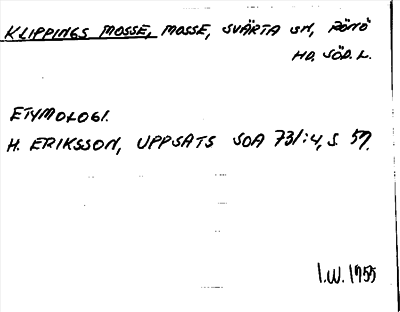 KLIPPINGS MOSSE, MOSSE, SVÄRTA SN, RÖNÖ
HD. SÖD. L.
ETYMOLOGI.
H. ERIKSSON, UPPSATS SOA 731:4, S. 57.
I.W. 1955